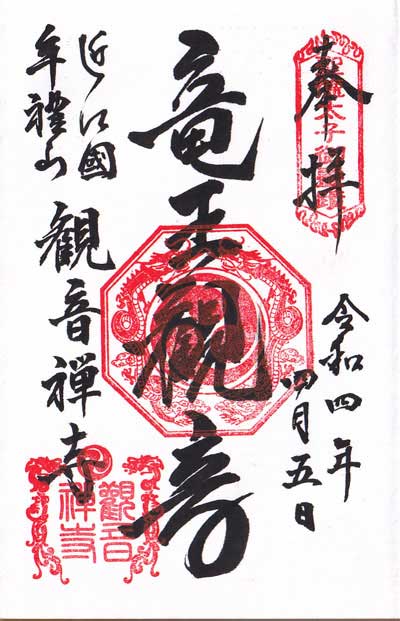 奉拝
令和四年
四月五日
竜王観音
近江國
牟禮山
観音禅寺
觀音
禅寺